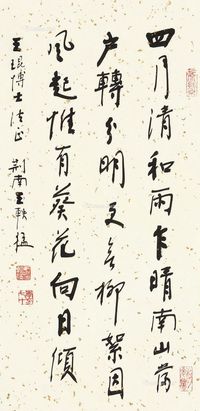 四月清和雨乍晴南山當
戶轉分明更無柳絮因
風起惟有葵花向日傾
王琨博士法正 荆南王軼猛